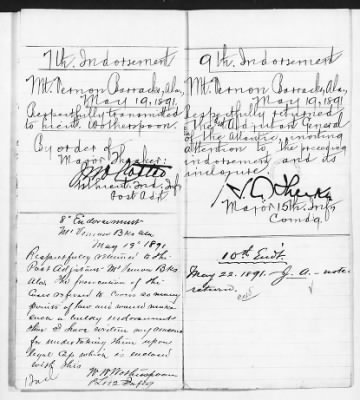 7th Indorsement
Mt. Vernon Barracks, Ala,
May 19, 1891.
Respectfully transmitted
to Lieut. Wotherspoon.
By order of
Major
Post Adjt
8" Endorsement
Mt Vernon Bks Ala
May 19" 1891
Respectfully returned to the
Post Adjutant Mt Vernon Bks
Ala. The
Cases referred to covers so many
points of law and would make
such a
that I have written my
for undertaking them upon
legal cap which is enclosed
with this
W W Wotherspoon
1 Incl
9th Indorsement
Mt. Vernon Barracks, Ala,
May 19, 1891.
Respectfully returned
to the Adjutant General
of the Atlantic, inviting
attention to the preceding
indorsement and its
inclosure.
Major 15th Inf
Comdg
10th End't.
May 22. 1891. J. A. - note
return.